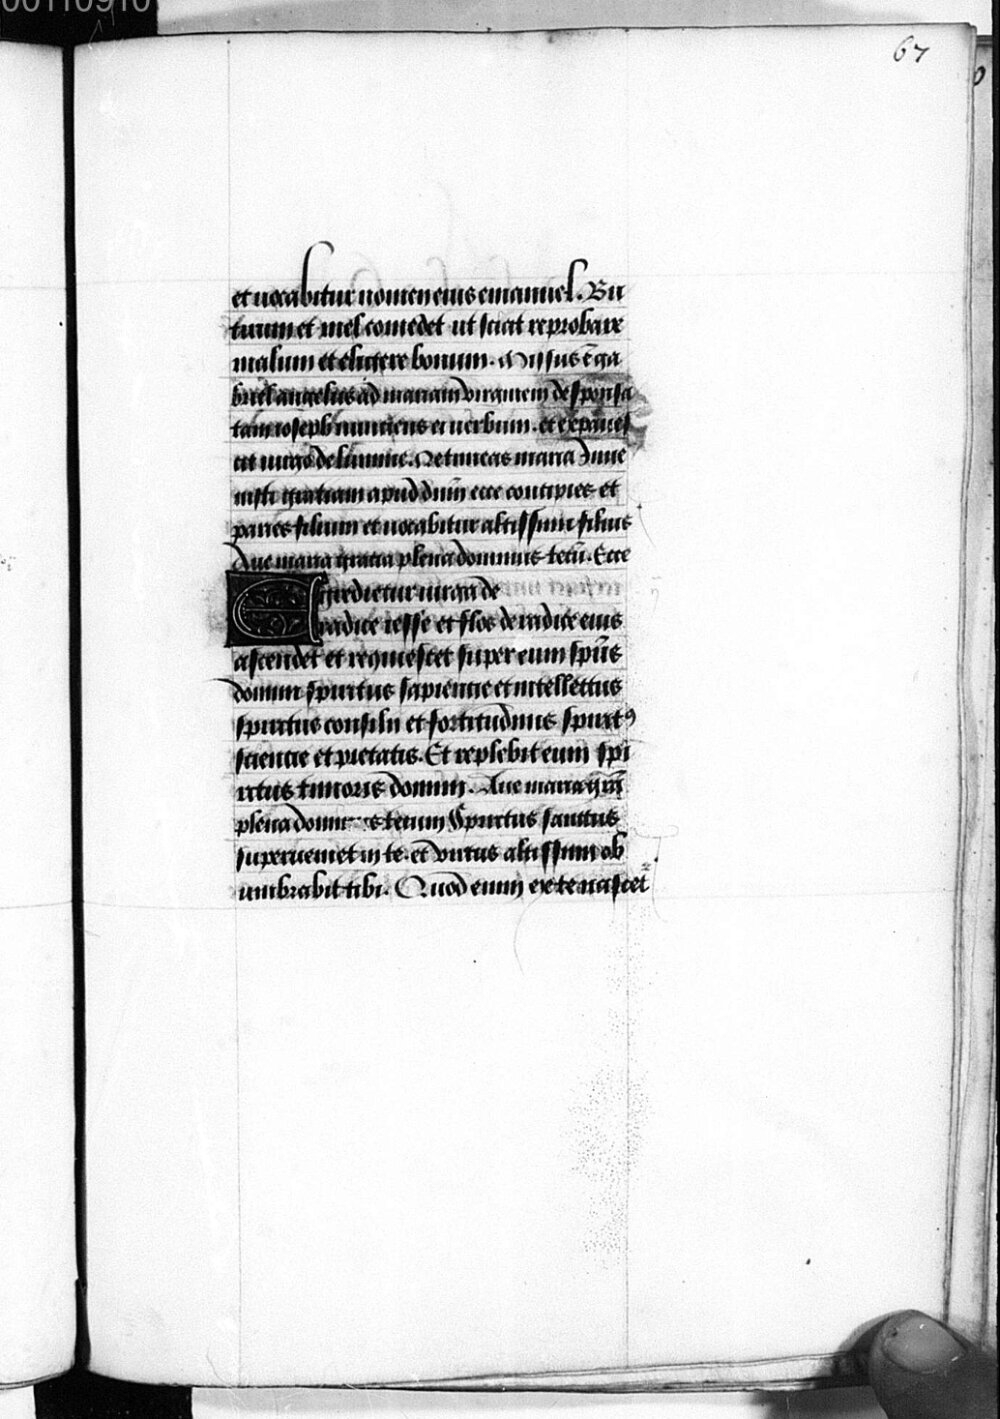 00110910
67
et vocabitur nomen eius emanuel. Bu
tirum et mel comedet ut sciat reprobare
malum et eligere bonum. Missus ē ga
briel angelus ad mariam virginem desponsa
tam ioseph nuntiens ei verbum. et expaues
cit uirgo de lumine. Ne timeas maria Inue
nisti gratiam apud dnm̄ ecce concipies et
paries filium et vocabitur altissimi filius
Aue maria gracia plena dominus tecū. Ecce
Egredietur uirga de
radice iesse et flos de radice eius
ascendet et requiescet super eum spūs
domini spiritus sapientie et intellectus
spiritus consilii et fortitudinis spirit9
sciencie et pietatis. Et replebit eum spi
ritus timoris domini. Aue maria grā
plena domi s tecum Spiritus sanctus
superueniet in te. et virtus altissimi ob
umbrabit tibi. Quod enim ex te nascet